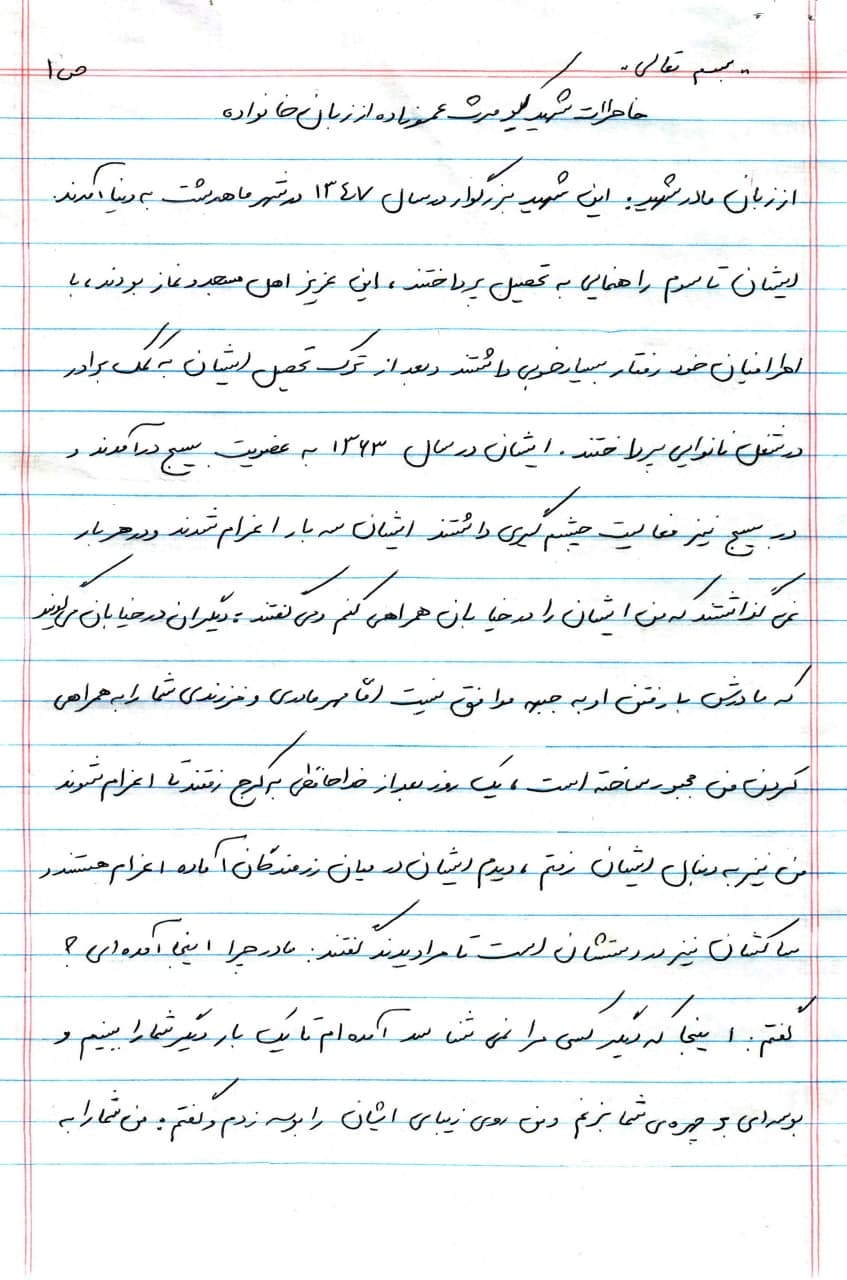 «بسم تعالی» ص ۱
خاطرات شهید کیومرث عموزاده از زبان خانواده
از زبان مادر شهید: این شهید بزرگوار در سال ۱۳٤۷ در شهر ماهدشت به دنیا آمدند.
ایشان تا سوم راهنمایی به تحصیل پرداختند، این عزیز اهل مسجد و نماز بودند، با
اطرافیان خود رفتار بسیار خوبی داشتند و بعد از ترک تحصیل ایشان به کمک برادر
در شغل نانوایی پرداختند. ایشان در سال ۱۳۶۳ به عضویت بسیج درآمدند و
در بسیج نیز فعالیت چشم گیری داشتند ایشان سه بار اعزام شدند و در هر بار
نمی گذاشتند که من ایشان را در خیابان همراهی کنم و می گفتند: دیگران در خیابان می گویند
که مادرش با رفتن او به جبهه موافق نیست امّا مهر مادری و فرزندی شما را به همراهی
کردن من مجبور ساخته است، یک روز بعد از خداحافظی به کرج رفتند تا اعزام شوند
من نیز به دنبال ایشان رفتم، دیدم ایشان در میان رزمندگان آماده اعزام هستند و
ساکشان نیز در دستشان است تا مرا دیدند گفتند: مادر چرا اینجا آمده ای؟
گفتم: اینجا که دیگر کسی مرا نمی شناسد آمده ام تا یک بار دیگر شما را ببینم و
بوسه ای بر چهره ی شما بزنم و من روی زیبای ایشان را بوسه زدم و گفتم: من شما را به